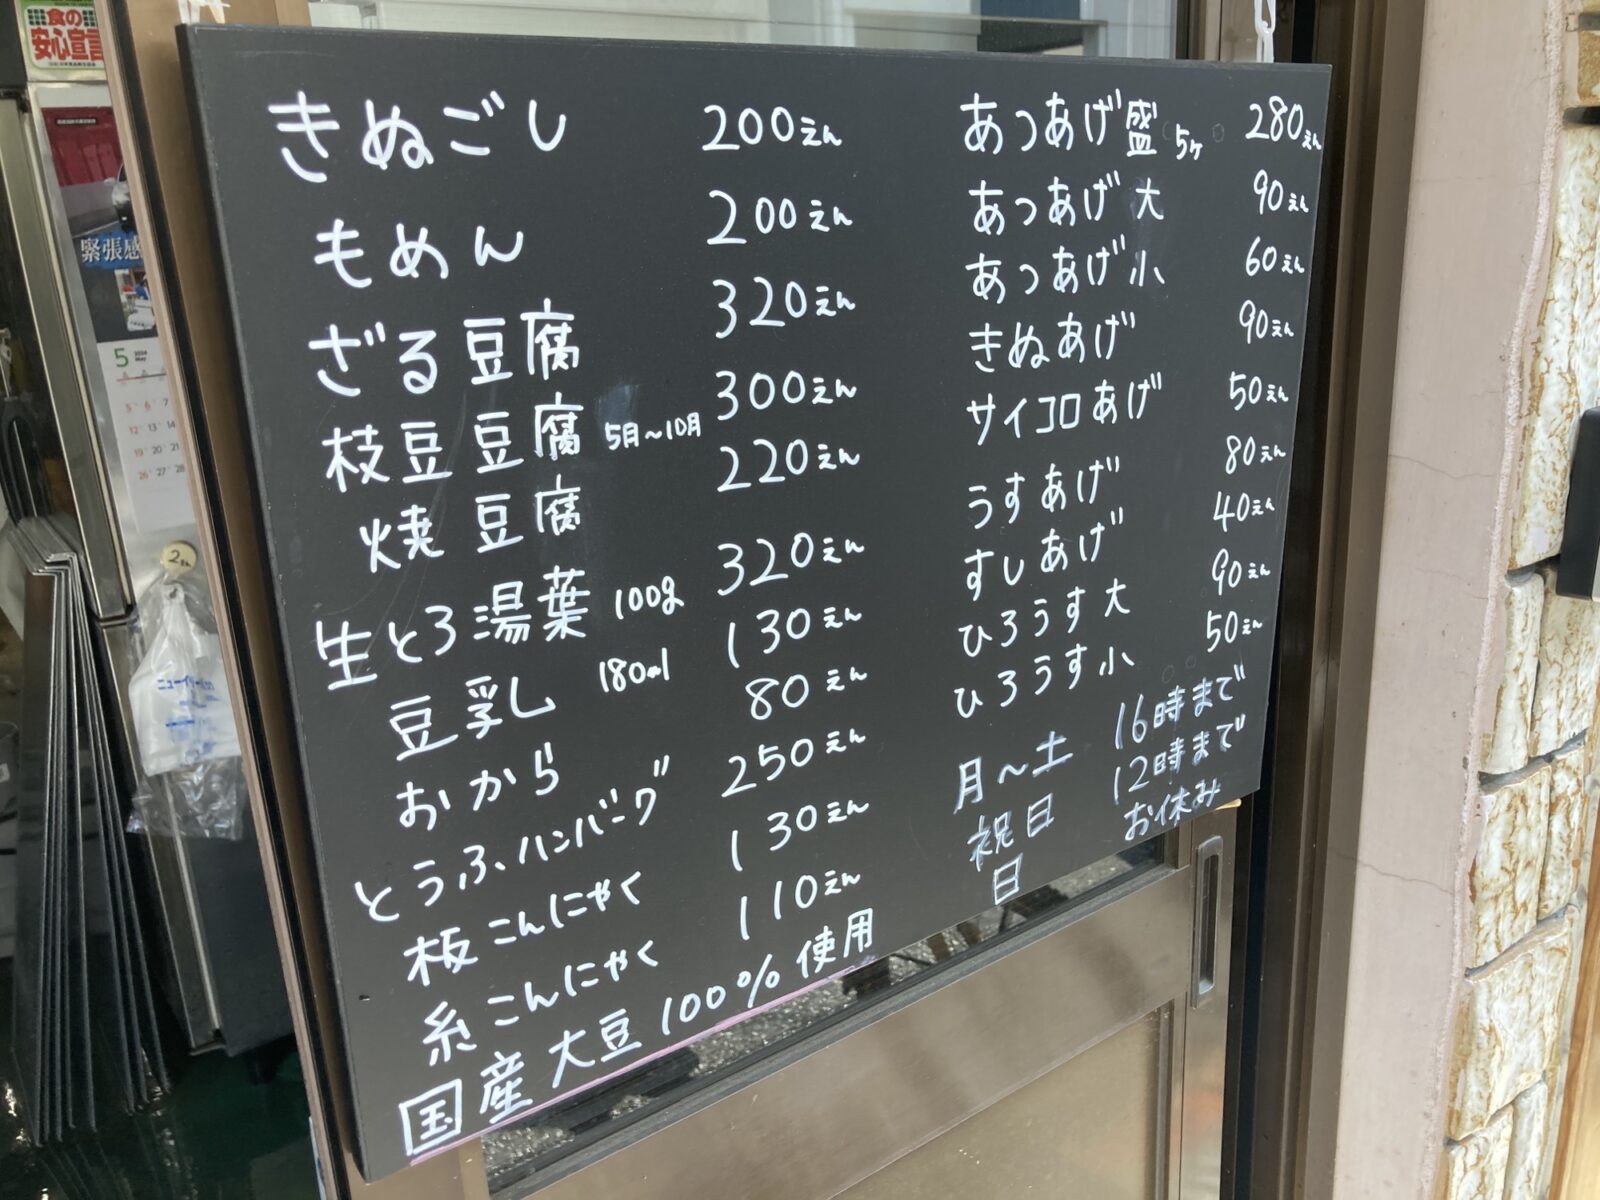 食の
安心宣言
緊張感
5 2024
May
5 6 7
12 13 14
19 20 21
26 27 28
きぬごし 200えん
もめん 200えん
ざる豆腐 320えん
枝豆豆腐 5月〜10月 300えん
焼豆腐 220えん
生とろ湯葉 100g 320えん
豆乳 180ml 130えん
おから 80えん
とうふハンバーグ 250えん
板こんにゃく 130えん
糸こんにゃく 110えん
国産大豆100%使用
あつあげ盛 5ヶ 280えん
あつあげ大 90えん
あつあげ小 60えん
きぬあげ 90えん
サイコロあげ 50えん
うすあげ 80えん
すしあげ 40えん
ひろうす大 90えん
ひろうす小 50えん
月〜土 16時まで
祝日 12時まで
日 お休み